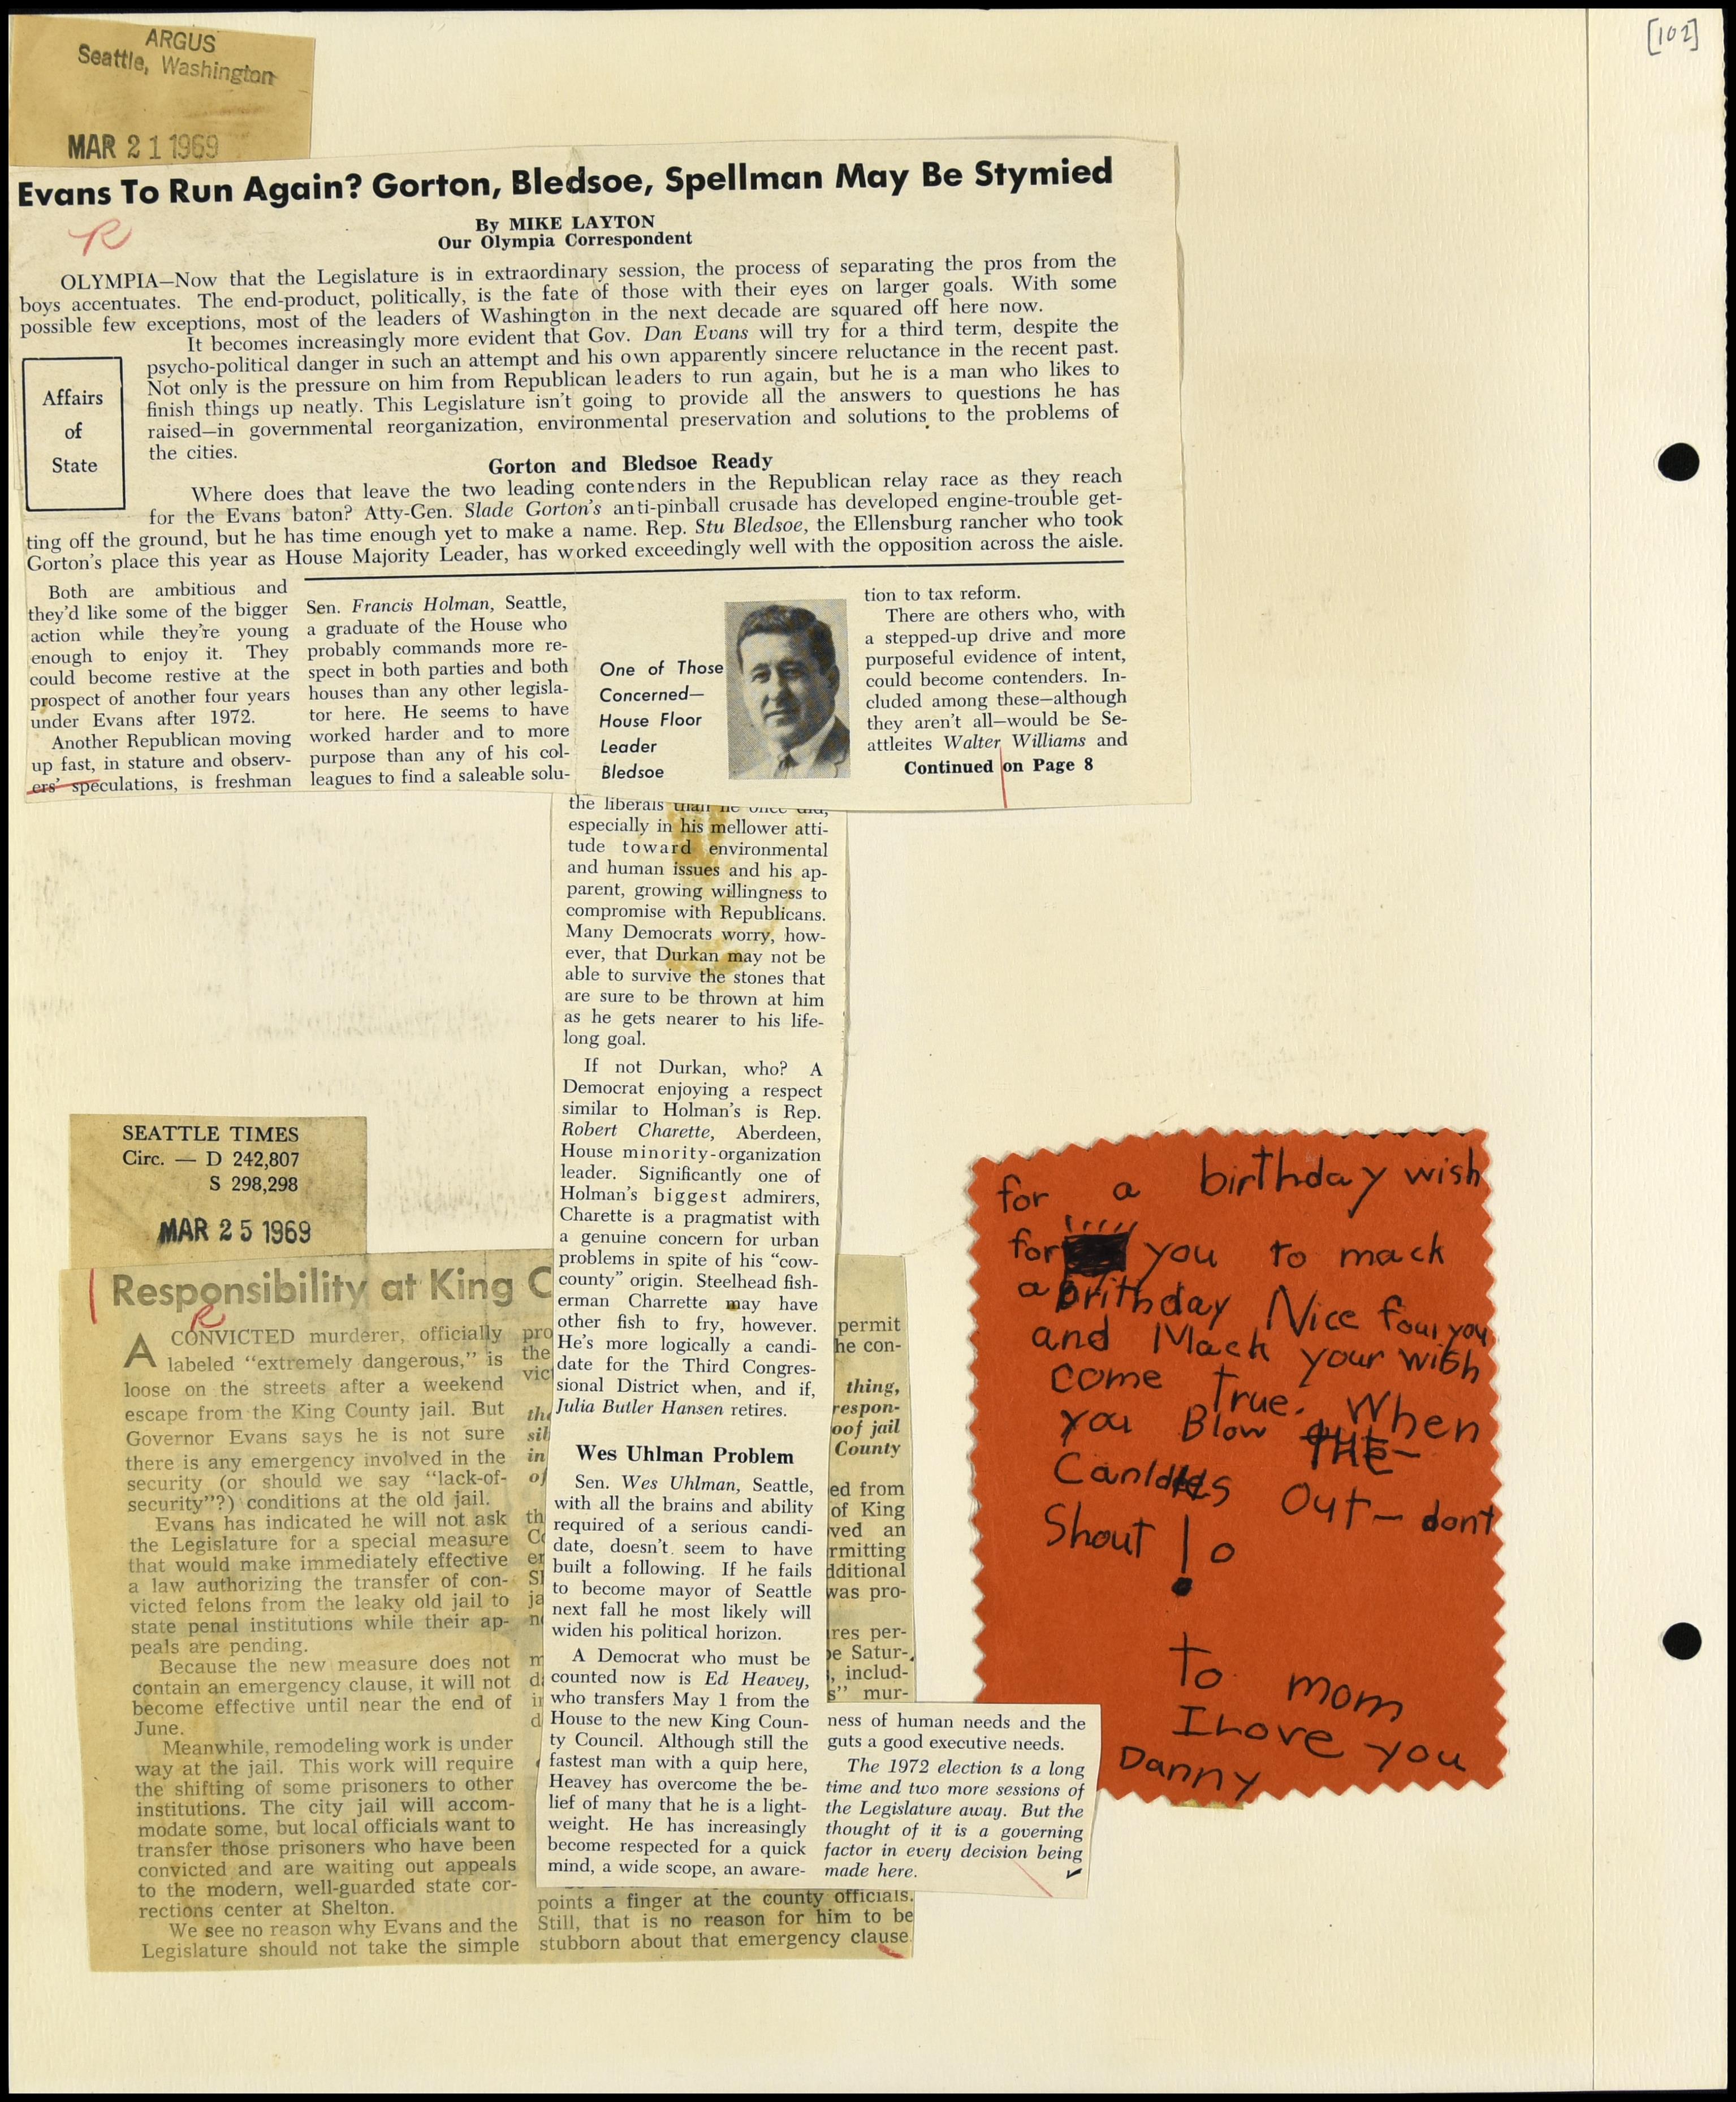 [102]
ARGUS
Seattle, Washington
MAR 21 1969
Evans To Run Again? Gorton, Bledsoe, Spellman May Be Stymied
R
By MIKE LAYTON
Our Olympia Correspondent
OLYMPIA—Now that the Legislature is in extraordinary session, the process of separating the pros from the
boys accentuates. The end-product, politically, is the fate of those with their eyes on larger goals. With some
possible few exceptions, most of the leaders of Washington in the next decade are squared off here now.
Affairs
of
State
It becomes increasingly more evident that Gov. Dan Evans will try for a third term, despite the
psycho-political danger in such an attempt and his own apparently sincere reluctance in the recent past.
Not only is the pressure on him from Republican leaders to run again, but he is a man who likes to
finish things up neatly. This Legislature isn't going to provide all the answers to questions he has
raised—in governmental reorganization, environmental preservation and solutions to the problems of
the cities.
Gorton and Bledsoe Ready
Where does that leave the two leading contenders in the Republican relay race as they reach
for the Evans baton? Atty-Gen. Slade Gorton's anti-pinball crusade has developed engine-trouble get-
ting off the ground, but he has time enough yet to make a name. Rep. Stu Bledsoe, the Ellensburg rancher who took
Gorton's place this year as House Majority Leader, has worked exceedingly well with the opposition across the aisle.
Both are ambitious and
they'd like some of the bigger
action while they're young
enough to enjoy it. They
could become restive at the
prospect of another four years
under Evans after 1972.
Another Republican moving
up fast, in stature and observ-
ers' speculations, is freshman
Sen. Francis Holman, Seattle,
a graduate of the House who
probably commands more re-
spect in both parties and both
houses than any other legisla-
tor here. He seems to have
worked harder and to more
purpose than any of his col-
leagues to find a saleable solu-
One of Those
Concerned—
House Floor
Leader
Bledsoe
tion to tax reform.
There are others who, with
a stepped-up drive and more
purposeful evidence of intent,
could become contenders. In-
cluded among these—although
they aren't all—would be Se-
attleites Walter Williams and
Continued on Page 8
the liberals than he once did,
especially in his mellower atti-
tude toward environmental
and human issues and his ap-
parent, growing willingness to
compromise with Republicans.
Many Democrats worry, how-
ever, that Durkan may not be
able to survive the stones that
are sure to be thrown at him
as he gets nearer to his life-
long goal.
If not Durkan, who? A
Democrat enjoying a respect
similar to Holman's is Rep.
Robert Charette, Aberdeen,
House minority-organization
leader. Significantly one of
Holman's biggest admirers,
Charette is a pragmatist with
a genuine concern for urban
problems in spite of his "cow-
county" origin. Steelhead fish-
erman Charrette may have
other fish to fry, however.
He's more logically a candi-
date for the Third Congres-
sional District when, and if,
Julia Butler Hansen retires.
Wes Uhlman Problem
Sen. Wes Uhlman, Seattle,
with all the brains and ability
required of a serious candi-
date, doesn't seem to have
built a following. If he fails
to become mayor of Seattle
next fall he most likely will
widen his political horizon.
A Democrat who must be
counted now is Ed Heavey,
who transfers May 1 from the
House to the new King Coun-
ty Council. Although still the
fastest man with a quip here,
Heavey has overcome the be-
lief of many that he is a light-
weight. He has increasingly
become respected for a quick
mind, a wide scope, an aware-
ness of human needs and the
guts a good executive needs.
The 1972 election is a long
time and two more sessions of
the Legislature away. But the
thought of it is a governing
factor in every decision being
made here.
SEATTLE TIMES
Circ. — D 242,807
S 298,298
MAR 25 1969
Responsibility at King C
R
A CONVICTED murderer, officially
labeled "extremely dangerous," is
loose on the streets after a weekend
escape from the King County jail. But
Governor Evans says he is not sure
there is any emergency involved in the
security (or should we say "lack-of-
security"?) conditions at the old jail.
Evans has indicated he will not ask
the Legislature for a special measure
that would make immediately effective
a law authorizing the transfer of con-
victed felons from the leaky old jail to
state penal institutions while their ap-
peals are pending.
Because the new measure does not
contain an emergency clause, it will not
become effective until near the end of
June.
Meanwhile, remodeling work is under
way at the jail. This work will require
the shifting of some prisoners to other
institutions. The city jail will accom-
modate some, but local officials want to
transfer those prisoners who have been
convicted and are waiting out appeals
to the modern, well-guarded state cor-
rections center at Shelton.
We see no reason why Evans and the
Legislature should not take the simple
pro
the
vic
permit
he con-
thing,
respon-
oof jail
County
ed from
of King
ved an
rmitting
dditional
was pro-
ires per-
e Satur-
, includ-
s" mur-
points a finger at the county officials.
Still, that is no reason for him to be
stubborn about that emergency clause.
for a birthday wish
for you to mack
a brithday Nice four you
and Mack your wish
come true. When
you Blow THE
Canldes Out — dont
Shout !
to mom
I Love you
Danny